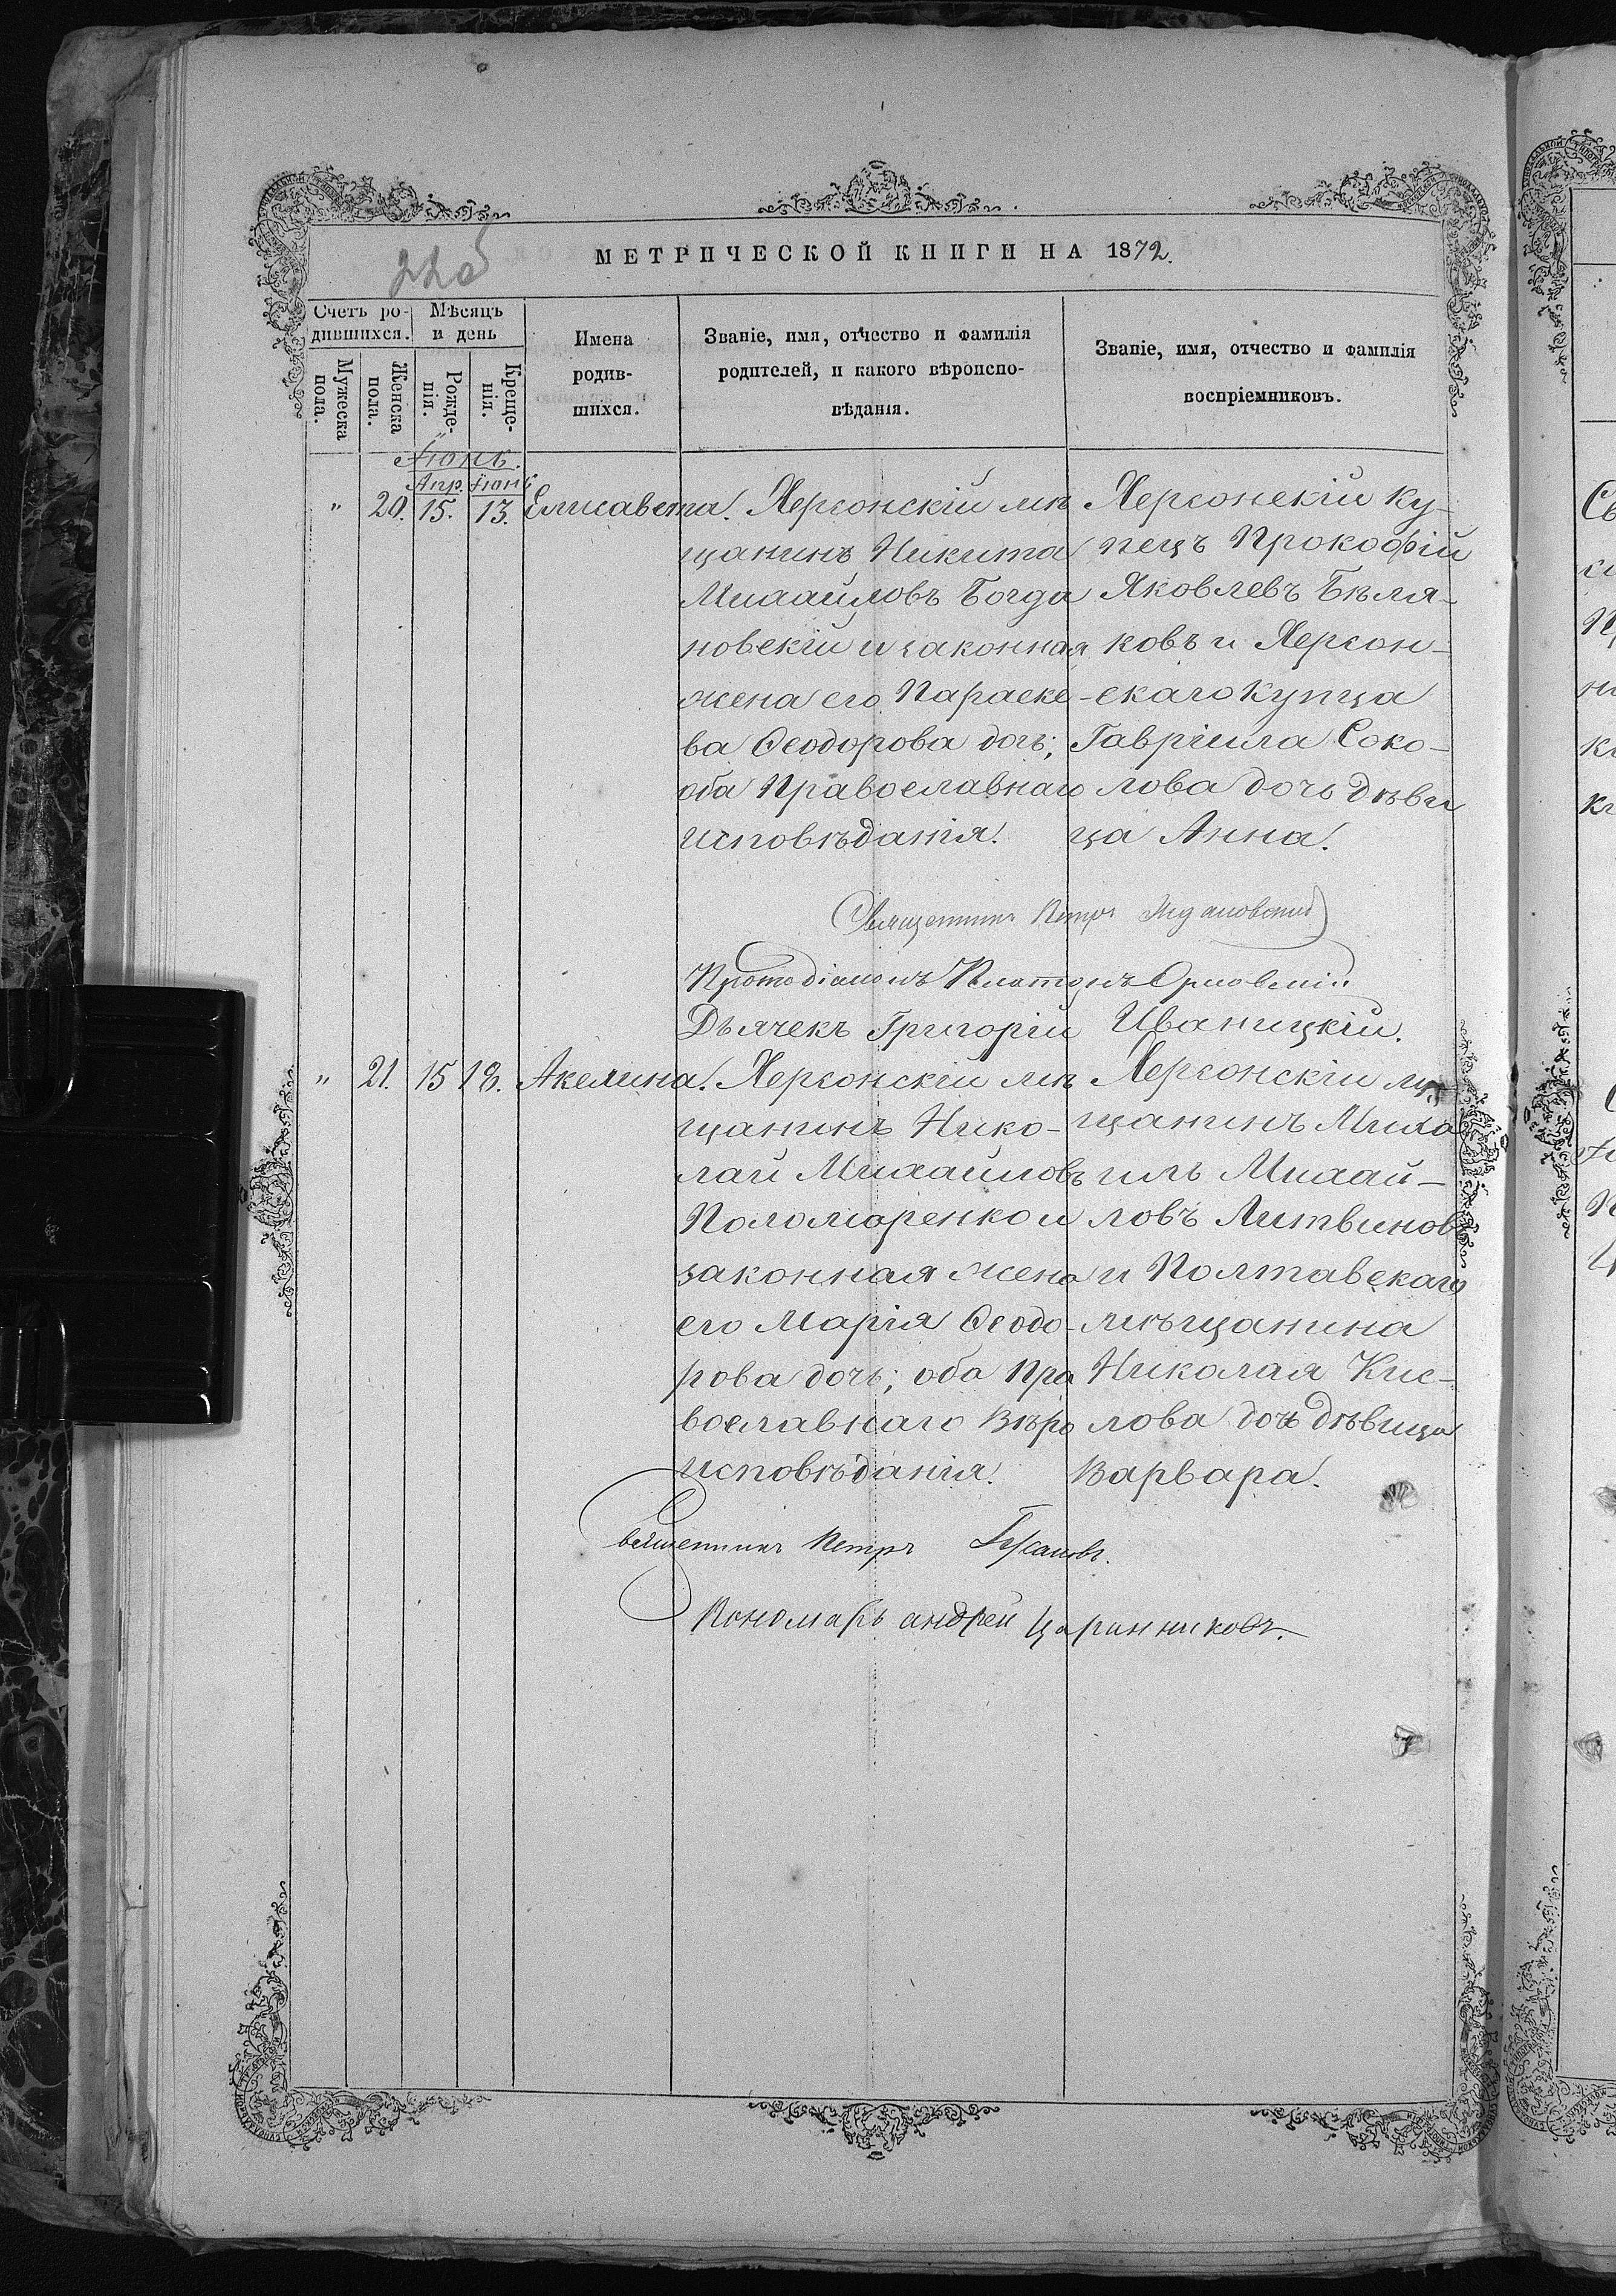 22об
МЕТРИЧЕСКОЙ КНИГИ НА 1872.
Счетъ ро-
дившихся.
Мѣсяцъ
и день
Мужеска
пола.
Женска
пола.
Рожде-
нія.
Креще-
нія.
Имена
родив-
шихся.
Званіе, имя, отчество и фамилія
родителей, и какого вѣроиспо-
вѣданія.
Званіе, имя, отчество и фамилія
воспріемниковъ.
Іюнь.
Апр. Іюнь
" 20. 15. 13. Елисавета.
Херсонскій мѣ
щанинъ Никита
Михайловъ Богда
новскій и законная
жена его Параске
ва Ѳеодорова дочь;
оба Православнаго
исповѣданія.
Херсонскій ку-
пецъ Прокофій
Яковлевъ Бѣля-
ковъ и Херсон-
скаго купца
Гавріила Соко-
лова дочь дѣви
ца Анна.
Священникъ Петръ
Протодіаконъ Платонъ Орловскій
Дьячекъ Григорій Иваницкій.
" 21. 15 18. Акелина.
Херсонскій мѣ
щанинъ Нико-
лай Михайловъ
Поломаренко и
законная жена
его Марія Ѳеодо-
рова дочь; оба Пра
вославнаго Вѣро
исповѣданія.
Херсонскій мѣ
щанинъ Миха
илъ Михай-
ловъ Литвиновъ
и Полтавскаго
мѣщанина
Николая Кис-
лова дочь дѣвица
Варвара.
Священникъ Петръ
Пономарь андрей Царинниковъ.